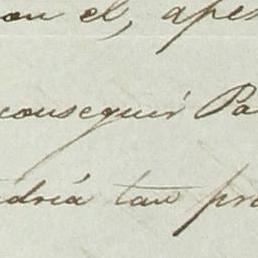 con el, apes
conseguir Pa
ndria tan pro